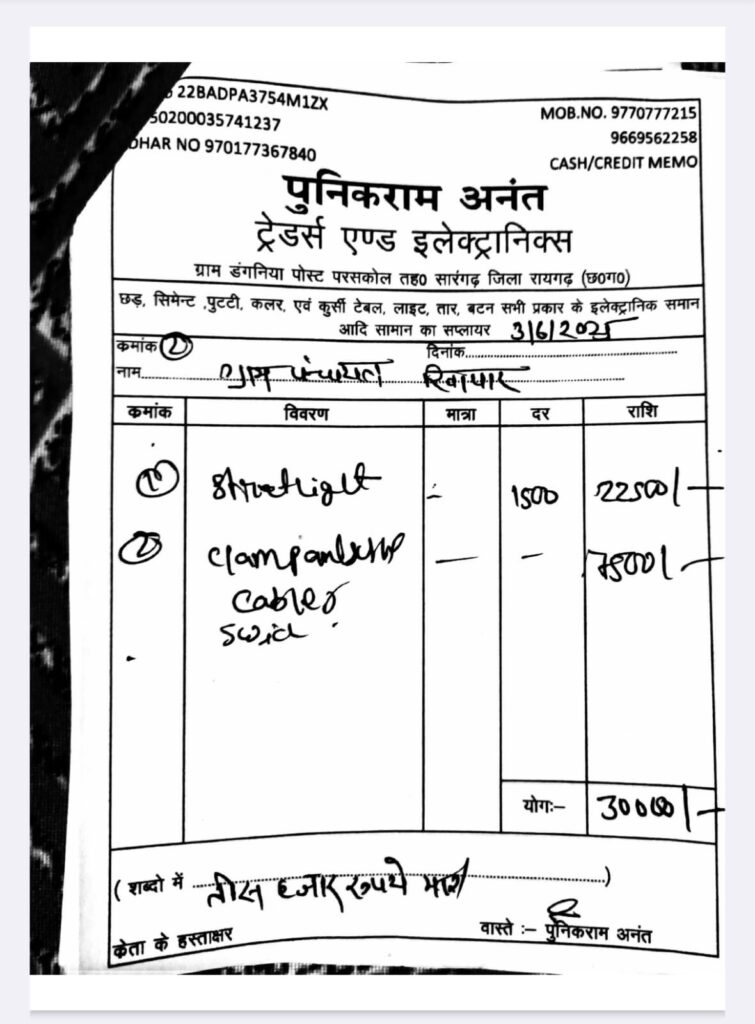 22BADPA3754M1ZX
50200035741237
DHAR NO 970177367840
MOB.NO. 9770777215
9669562258
CASH/CREDIT MEMO
पुनिकराम अनंत
ट्रेडर्स एण्ड इलेक्ट्रानिक्स
ग्राम डंगनिया पोस्ट परसकोल तह0 सारंगढ़ जिला रायगढ़ (छ0ग0)
छड़, सिमेन्ट ,पुटटी, कलर, एवं कुर्सी टेबल, लाइट, तार, बटन सभी प्रकार के इलेक्ट्रानिक समान
आदि सामान का सप्लायर 3/6/2025
कमांक 2 दिनांक
नाम ग्राम पंचायत
कमांक विवरण मात्रा दर राशि
1 Streetlight 1500 22500/-
2 7500/-
Cables
योगः- 30000/-
( शब्दो में तीस हजार रुपये मात्र )
केता के हस्ताक्षर
वास्ते :- पुनिकराम अनंत